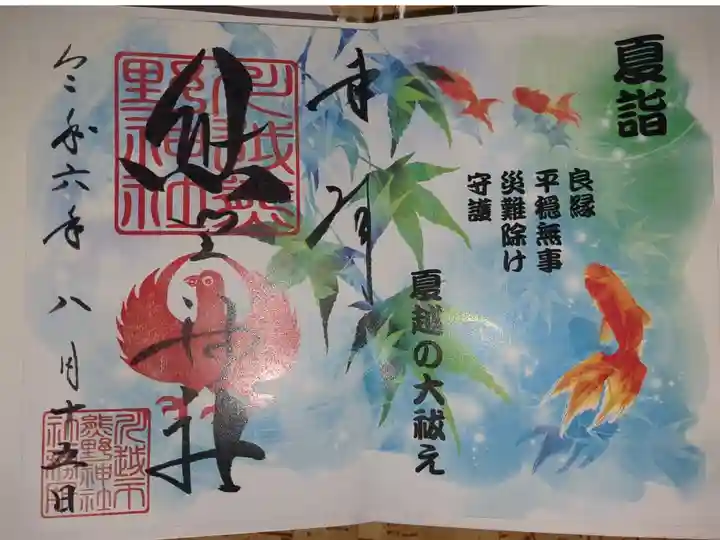 夏詣
良縁
平穏無事
災難除け
守護
夏越の大祓え
奉拝
川越熊野神社
熊野神社
令和六年八月十五日
川越市
熊野神社
社務所